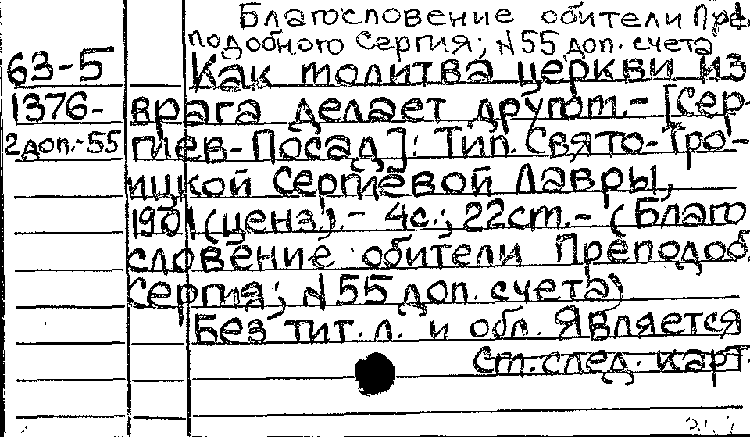 Благословение обители Пре
подобного Сергия; N 55 доп. счета
63-5
Как молитва церкви из
1376-
врага делает другом.- [Сер-
2 доп.-55
гиев-Посад]: Тип. Свято-Тро-
ицкой Сергиевой Лавры,
1901 (ценз).- 4с.; 22см.- (Благо
словение обители Преподоб.
Сергия; N 55 доп. счета)
Без тит. л. и обл. Является
См. след. карт.